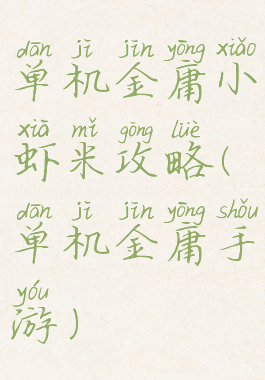 dān jī jīn yōng xiǎo
单机金庸小
xiā mǐ gōng lüè
虾米攻略(
dān jī jīn yōng shǒu
单机金庸手
yóu
游)